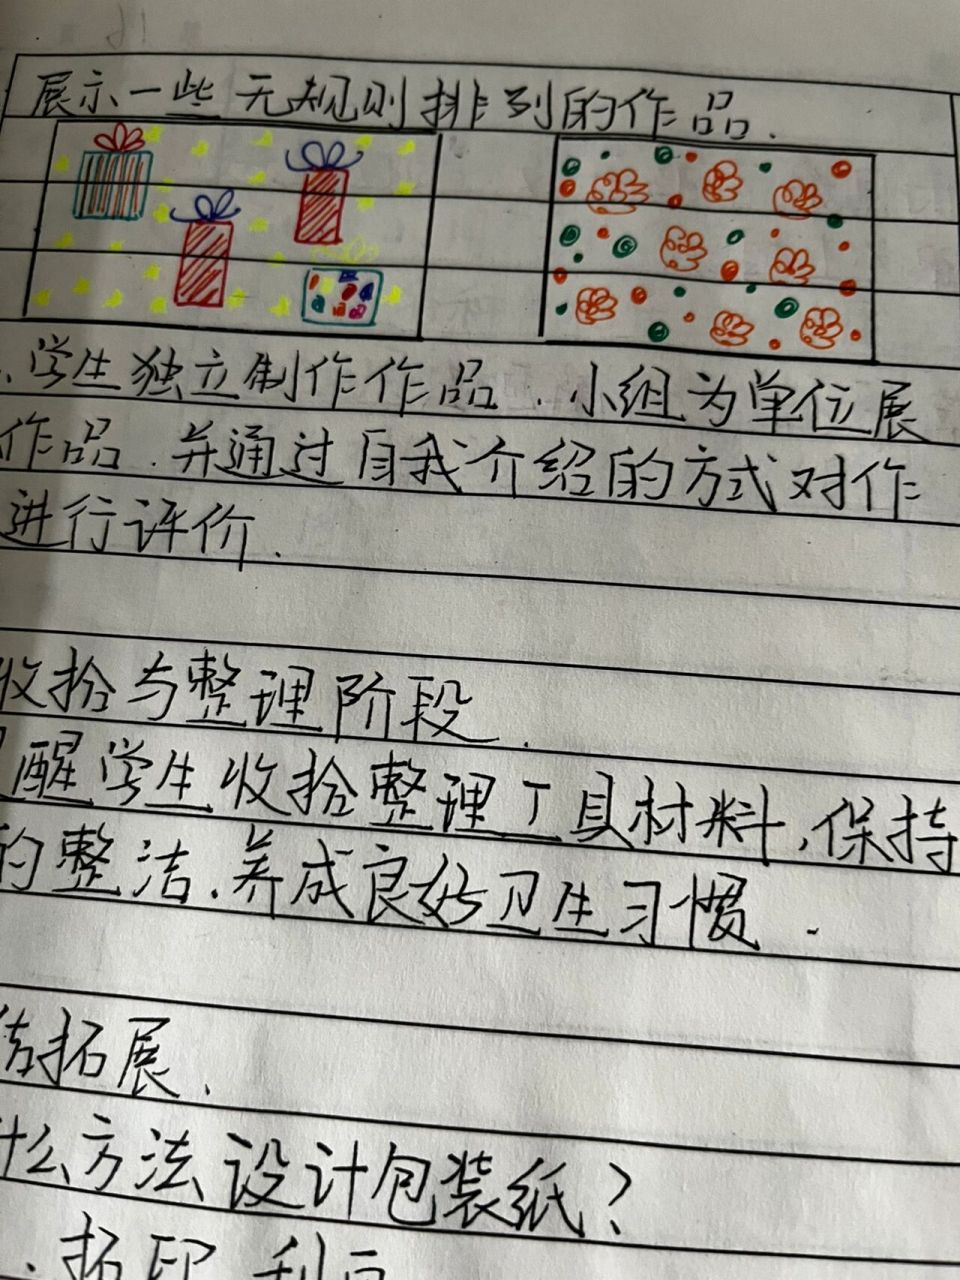 展示一些无规则排列的作品.
、学生独立制作作品.小组为单位展
作品.并通过自我介绍的方式对作
进行评价.
收拾与整理阶段.
醒学生收拾整理工具材料,保持
的整洁.养成良好卫生习惯.
拓展.
什么方法设计包装纸?
、拓印